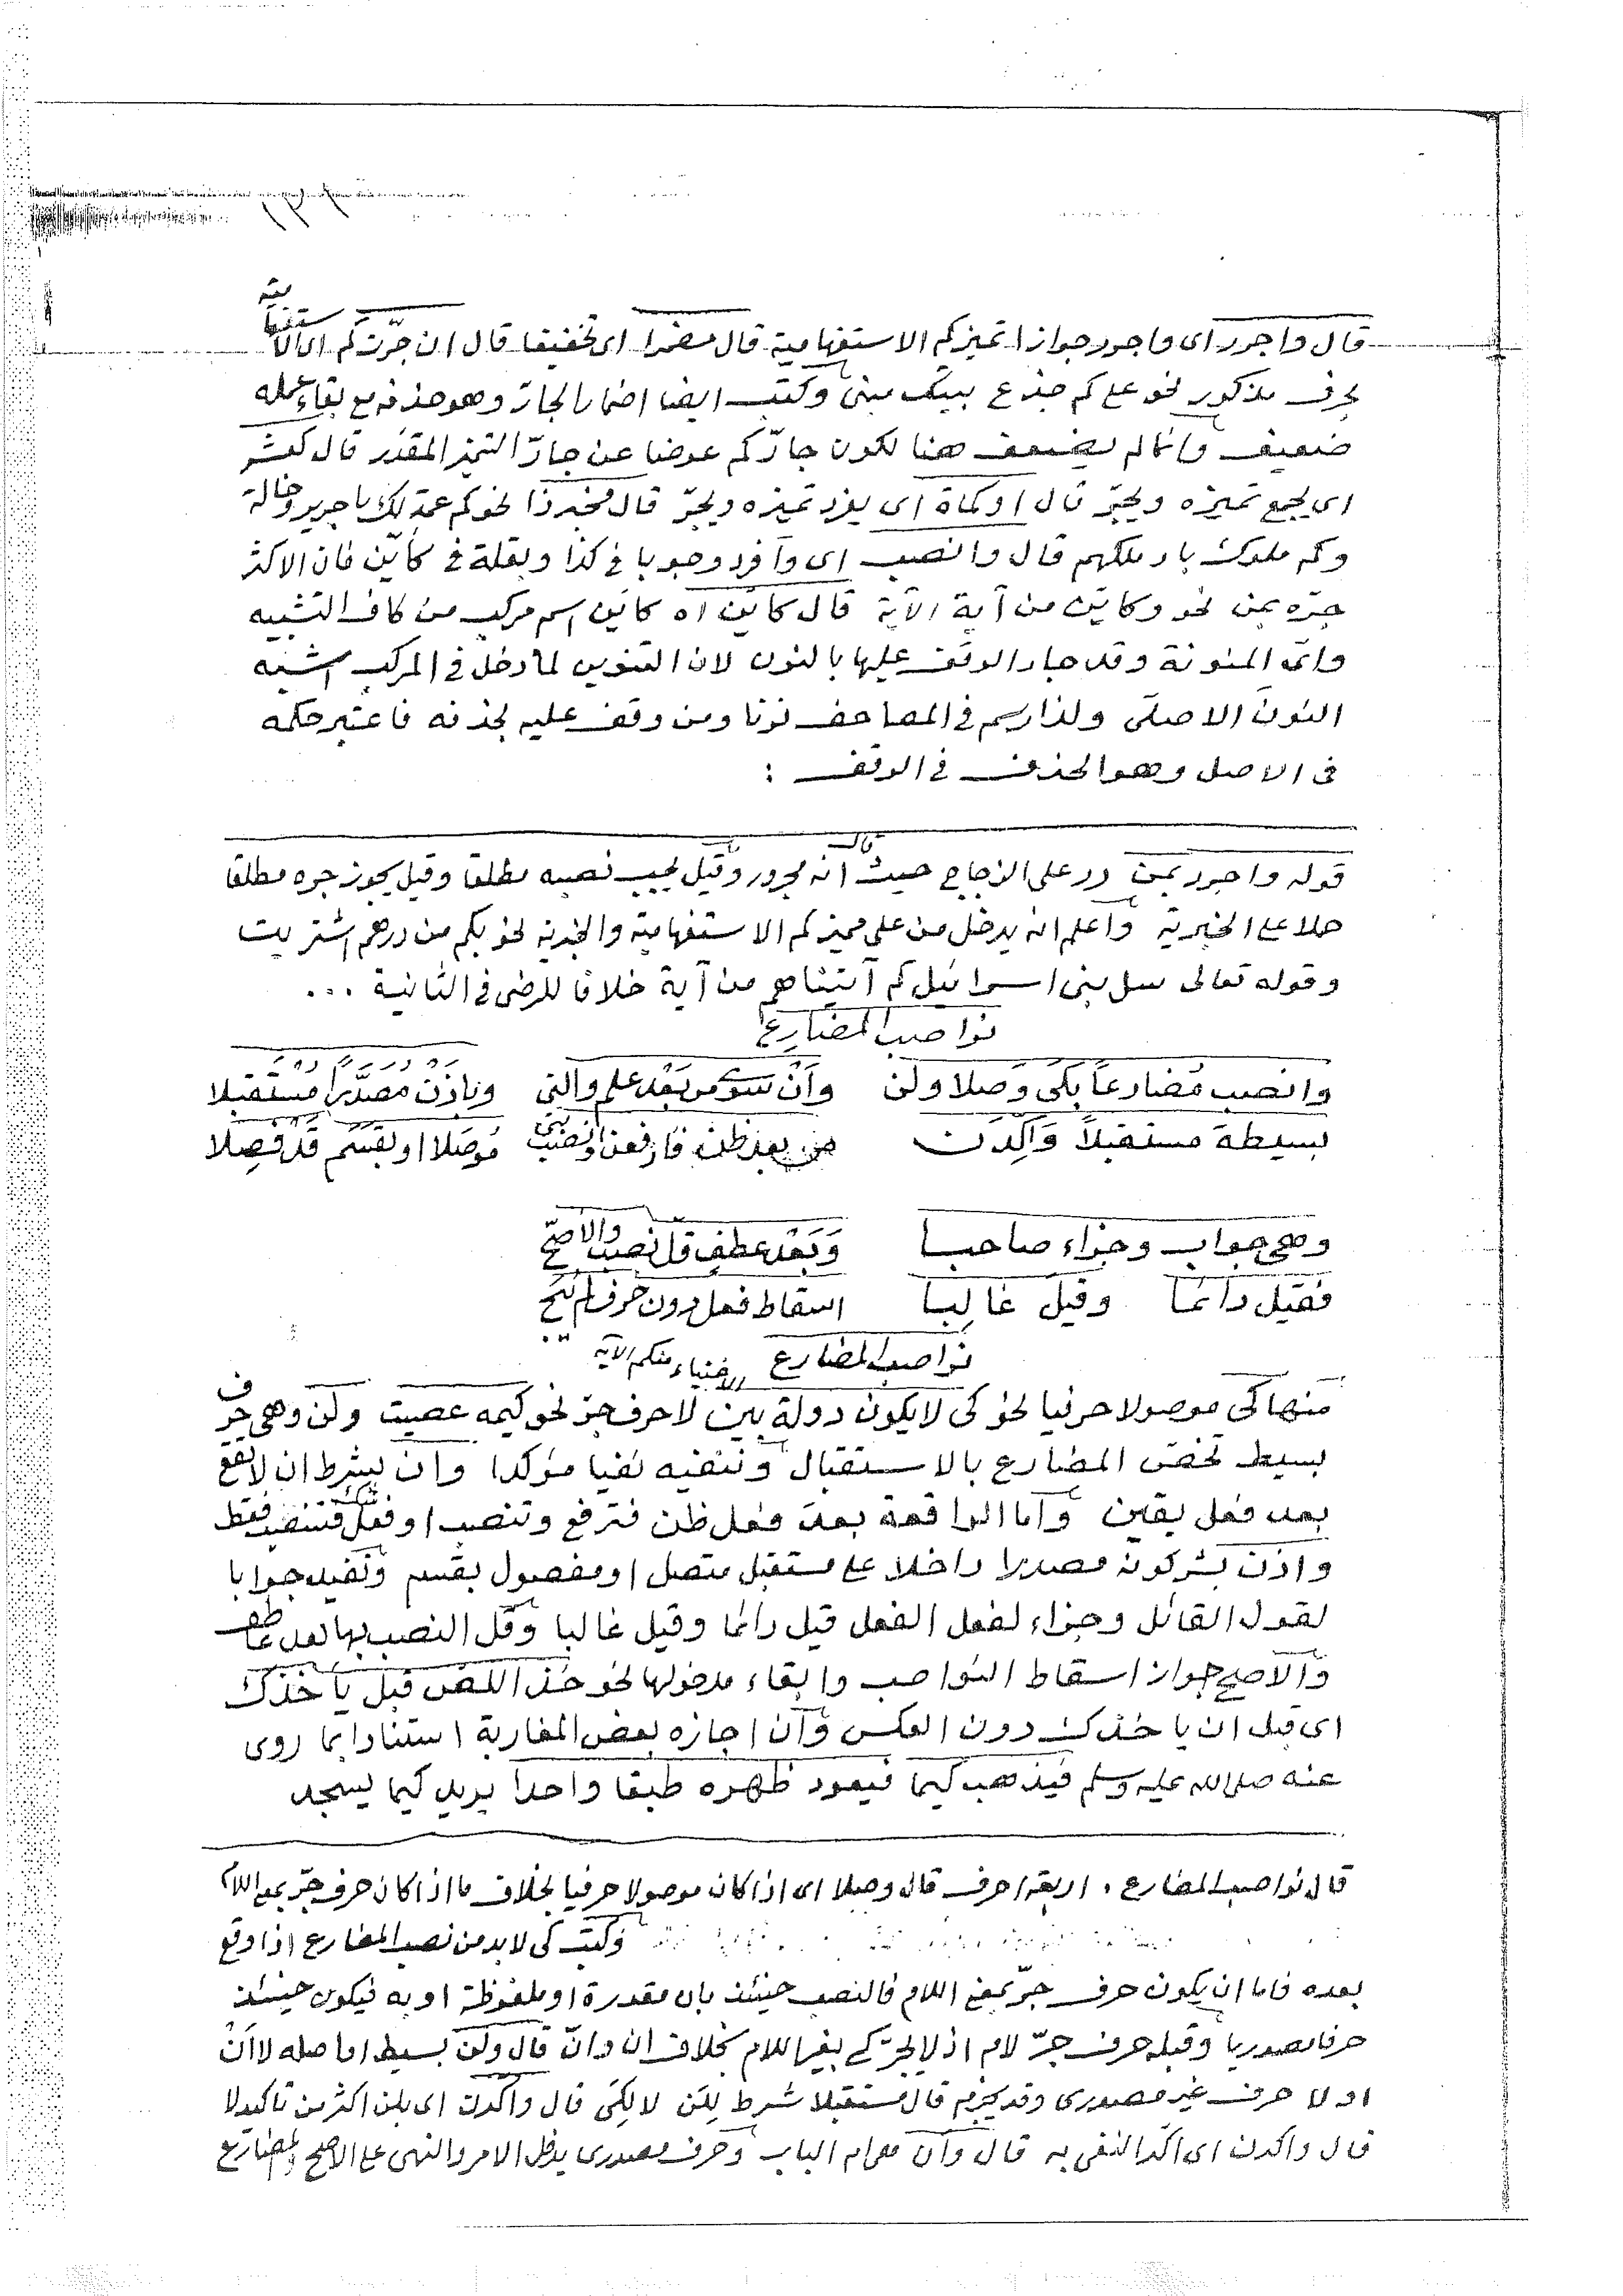 قال واجرر اى واجرر جوازا تميزكم الاستفهامية قال مضمرا اى تحقيقا قال ان جرّت كم اى الاستفهامية
بحرف مذكور نحو على كم جذع بيتك مبنى وكتب ايضا اضمار الجارّ وهو حذفه مع بقاء عمله
ضعيف وانما لم يضعف هنا لكون جارّكم عوضا عن جارّ التميز المقدر قال كعشر
اى يجمع تميزه ويجرّ قال او كمأة اى يفرد تميزه ويجرّ قال مخبرذا نحو كم عمة لك يا جرير وخالة
وكم ملوك باد ملكهم قال وانصب اى وافرد وجوبا فى كذا وبقلة فى كأيّن فان الاكثر
جرّه بمن نحو وكاين من آية الآية قال كاين اه كاين اسم مركب من كاف التشبيه
واىّ المنونة وقد جاز الوقف عليها بالنون لان التنوين لما دخل فى المركب اشبه
النون الاصلى ولذا رسم فى المصاحف نونا ومن وقف عليه بحذفه فاعتبر حكمه
فى الاصل وهو الحذف فى الوقف :
قوله واجرر بمن رد على الزجاج حيث قال انه مجرور وقيل يجب نصبه مطلقا وقيل يجوز جره مطلقا
حملا على الخبرية واعلم انه يدخل من على مميزكم الاستفهامية والخبرية نحو بكم من درهم اشتريت
وقوله تعالى سل بنى اسرائيل كم آتيناهم من آية خلافا للرضى فى الثانية ...
نواصب المضارع
وانصب مُضارعاً بكى وَصلا ولن وَأنْ سوى من بَعْد علم والتى وباذَنْ مصدّرا مُستقبلا
بسيطةَ مستقبلاً وَاكِّدَن من بعد ظن فارفعن وانصب مُوصَلا او بقسَم قد فُصِلا
وهى جواب وجزاء صاحبا وَبَعْد عطفٍ قلّ نصب والاصحّ
فقيل دائما وقيل غالبا اسقاط فعل دون حرف لم يُبَحّ
نواصب المضارع
منها كى موصولا حرفيا نحو كى لايكون دولة بين الاغنياء منكم الآية لا حرف جرّ نحو كيمه عصيت ولن وهى حرف
بسيط تخصّ المضارع بالاستقبال وتنفيه نفيا مؤكدا وان بشرط ان لا تقع
بعد فعل يقين واما الواقعة بعد فعل ظن فترفع وتنصب او فعل شك فتنصب فقط
واذن بشرط كونه مصدرا داخلا على مستقبل متصل او مفصول بقسم وتفيد جوابا
لقول القائل وجزاء لفعل الفعل قيل دائما وقيل غالبا وقلّ النصب بها بعد عاطف
والاصح جواز اسقاط النواصب وابقاء مدخولها نحو خذ اللص قبل يأخذك
اى قبل ان ياخذك دون العكس وان اجازه بعض المغاربة استنادا بما روى
عنه صلى الله عليه وسلم فيذهب كيما فيعود ظهره طبقا واحدا يريد كيما يسجد
قال نواصب المضارع ، اربعة احرف قال وصلا اى اذا كان موصولا حرفيا بخلاف ما اذا كان حرف جرّ بمعنى اللام
وكتب كى لابد من نصب المضارع اذا وقع
بعده فاما ان يكون حرف جرّ بمعنى اللام فالنصب حينئذ بان مقدرة او ملفوظة او به فيكون حينئذ
حرفا مصدريا وقبله حرف جرّ لام اذ لا يجرّ كى بغير اللام بخلاف ان وانّ قال ولن بسيط او اصله لا اَنْ
او لا حرف غير مصدرى وقد يجزم قال مستقبلا شرط لِلَن لا لِكَى قال واكدن اى بلن اكثر من تاكيد لا
قال واكدن اى اكّد النفى به قال وان هو ام الباب وحرف مصدرى يدخل الامر والنهى على الاصح والمضارع